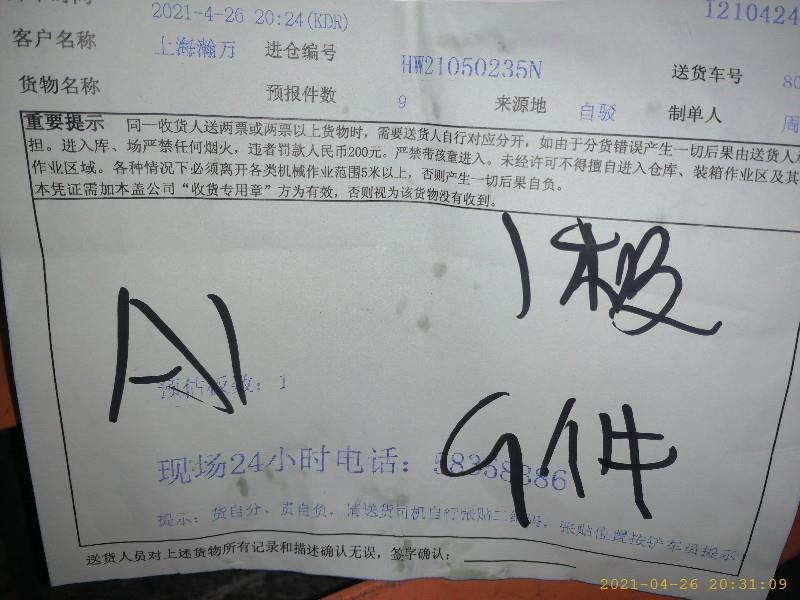 2021-4-26 20:24(KDR)
1210424
客户名称 上海瀚万 进仓编号 HW21050235N 送货车号 80
货物名称 预报件数 9 来源地 自驳 制单人 周
重要提示 同一收货人送两票或两票以上货物时，需要送货人自行对应分开，如由于分货错误产生一切后果由送货人
担。进入库、场严禁任何烟火，违者罚款人民币200元。严禁带孩童进入。未经许可不得擅自进入仓库、装箱作业区及其
作业区域。各种情况下必须离开各类机械作业范围5米以上，否则产生一切后果自负。
本凭证需加本盖公司“收货专用章”方为有效，否则视为该货物没有收到。
1板
A1
预估板数：1
9件
现场24小时电话：
提示：货自分、责自负，请送货司机自行张贴二维码，张贴位置按铲车员提示
送货人员对上述货物所有记录和描述确认无误，签字确认：
2021-04-26 20:31:09